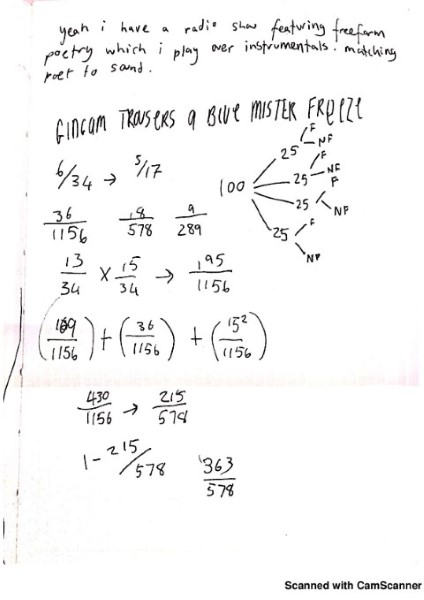 yeah i have a radio show featuring freeform
poetry which i play over instrumentals. matching
poet to sound.
GINGAM TROUSERS a BLUE MISTER FREEZE
6/34 → 5/17
36/1156 18/578 9/289
13/34 × 15/34 → 195/1156
(169/1156) + (36/1156) + (15²/1156)
430/1156 → 215/578
1 - 215/578 363/578
100
25 F NF
25 F NF
25 F NF
25 F NF
Scanned with CamScanner